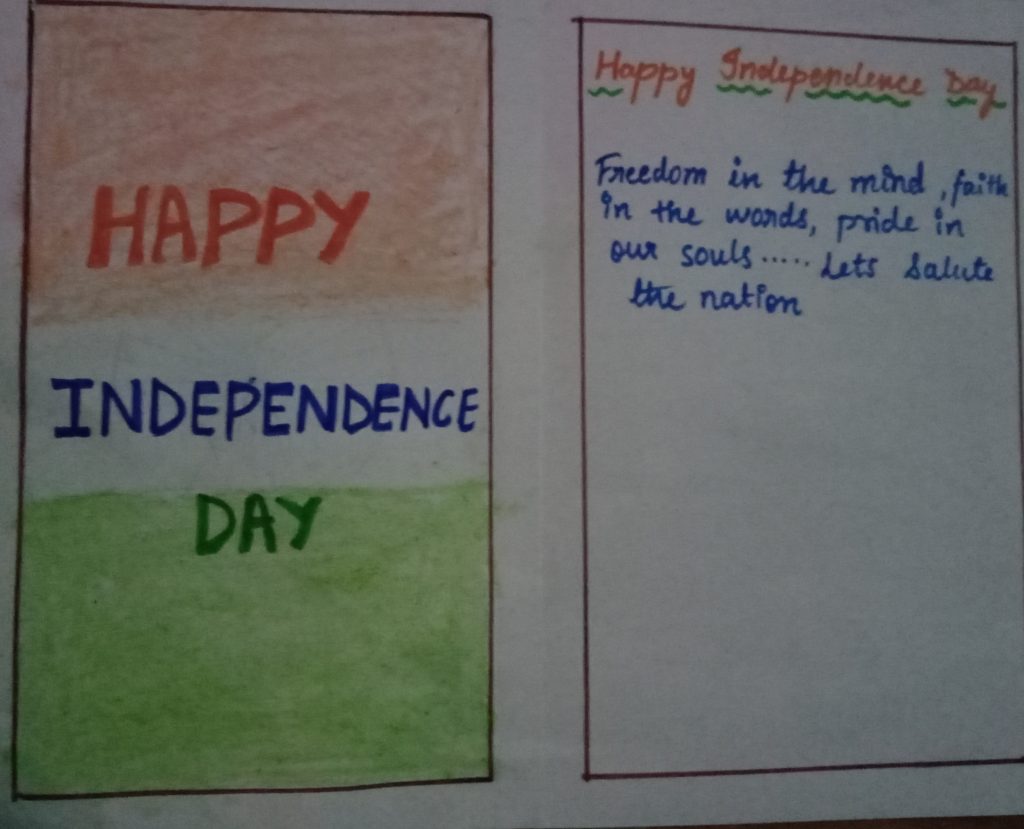 HAPPY
INDEPENDENCE
DAY
Happy Independence Day
Freedom in the mind, faith
in the words, pride in
our souls..... Lets Salute
the nation